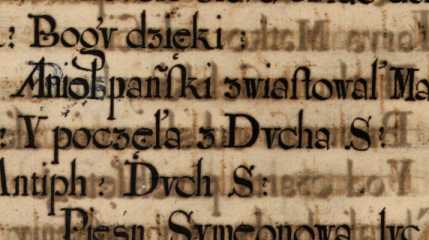 : Bogv dzięki :
Anioł pańſki zwiaſtował Ma
: Y poczęła z Dvcha S:
Antiph: Dvch S:
Pieśn Symeonowa